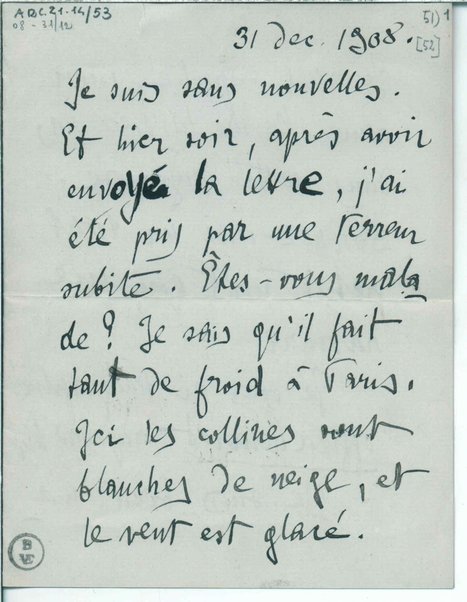 ARC.21.14/53
08-31/12
51) 1
[52]
31 Dec. 1908.
Je suis sans nouvelles.
Et hier soir, après avoir
envoyé la lettre, j'ai
été pris par une terreur
subite. Êtes-vous mala
de? Je sais qu'il fait
tant de froid à Paris.
Ici les collines sont
blanches de neige, et
le vent est glacé.